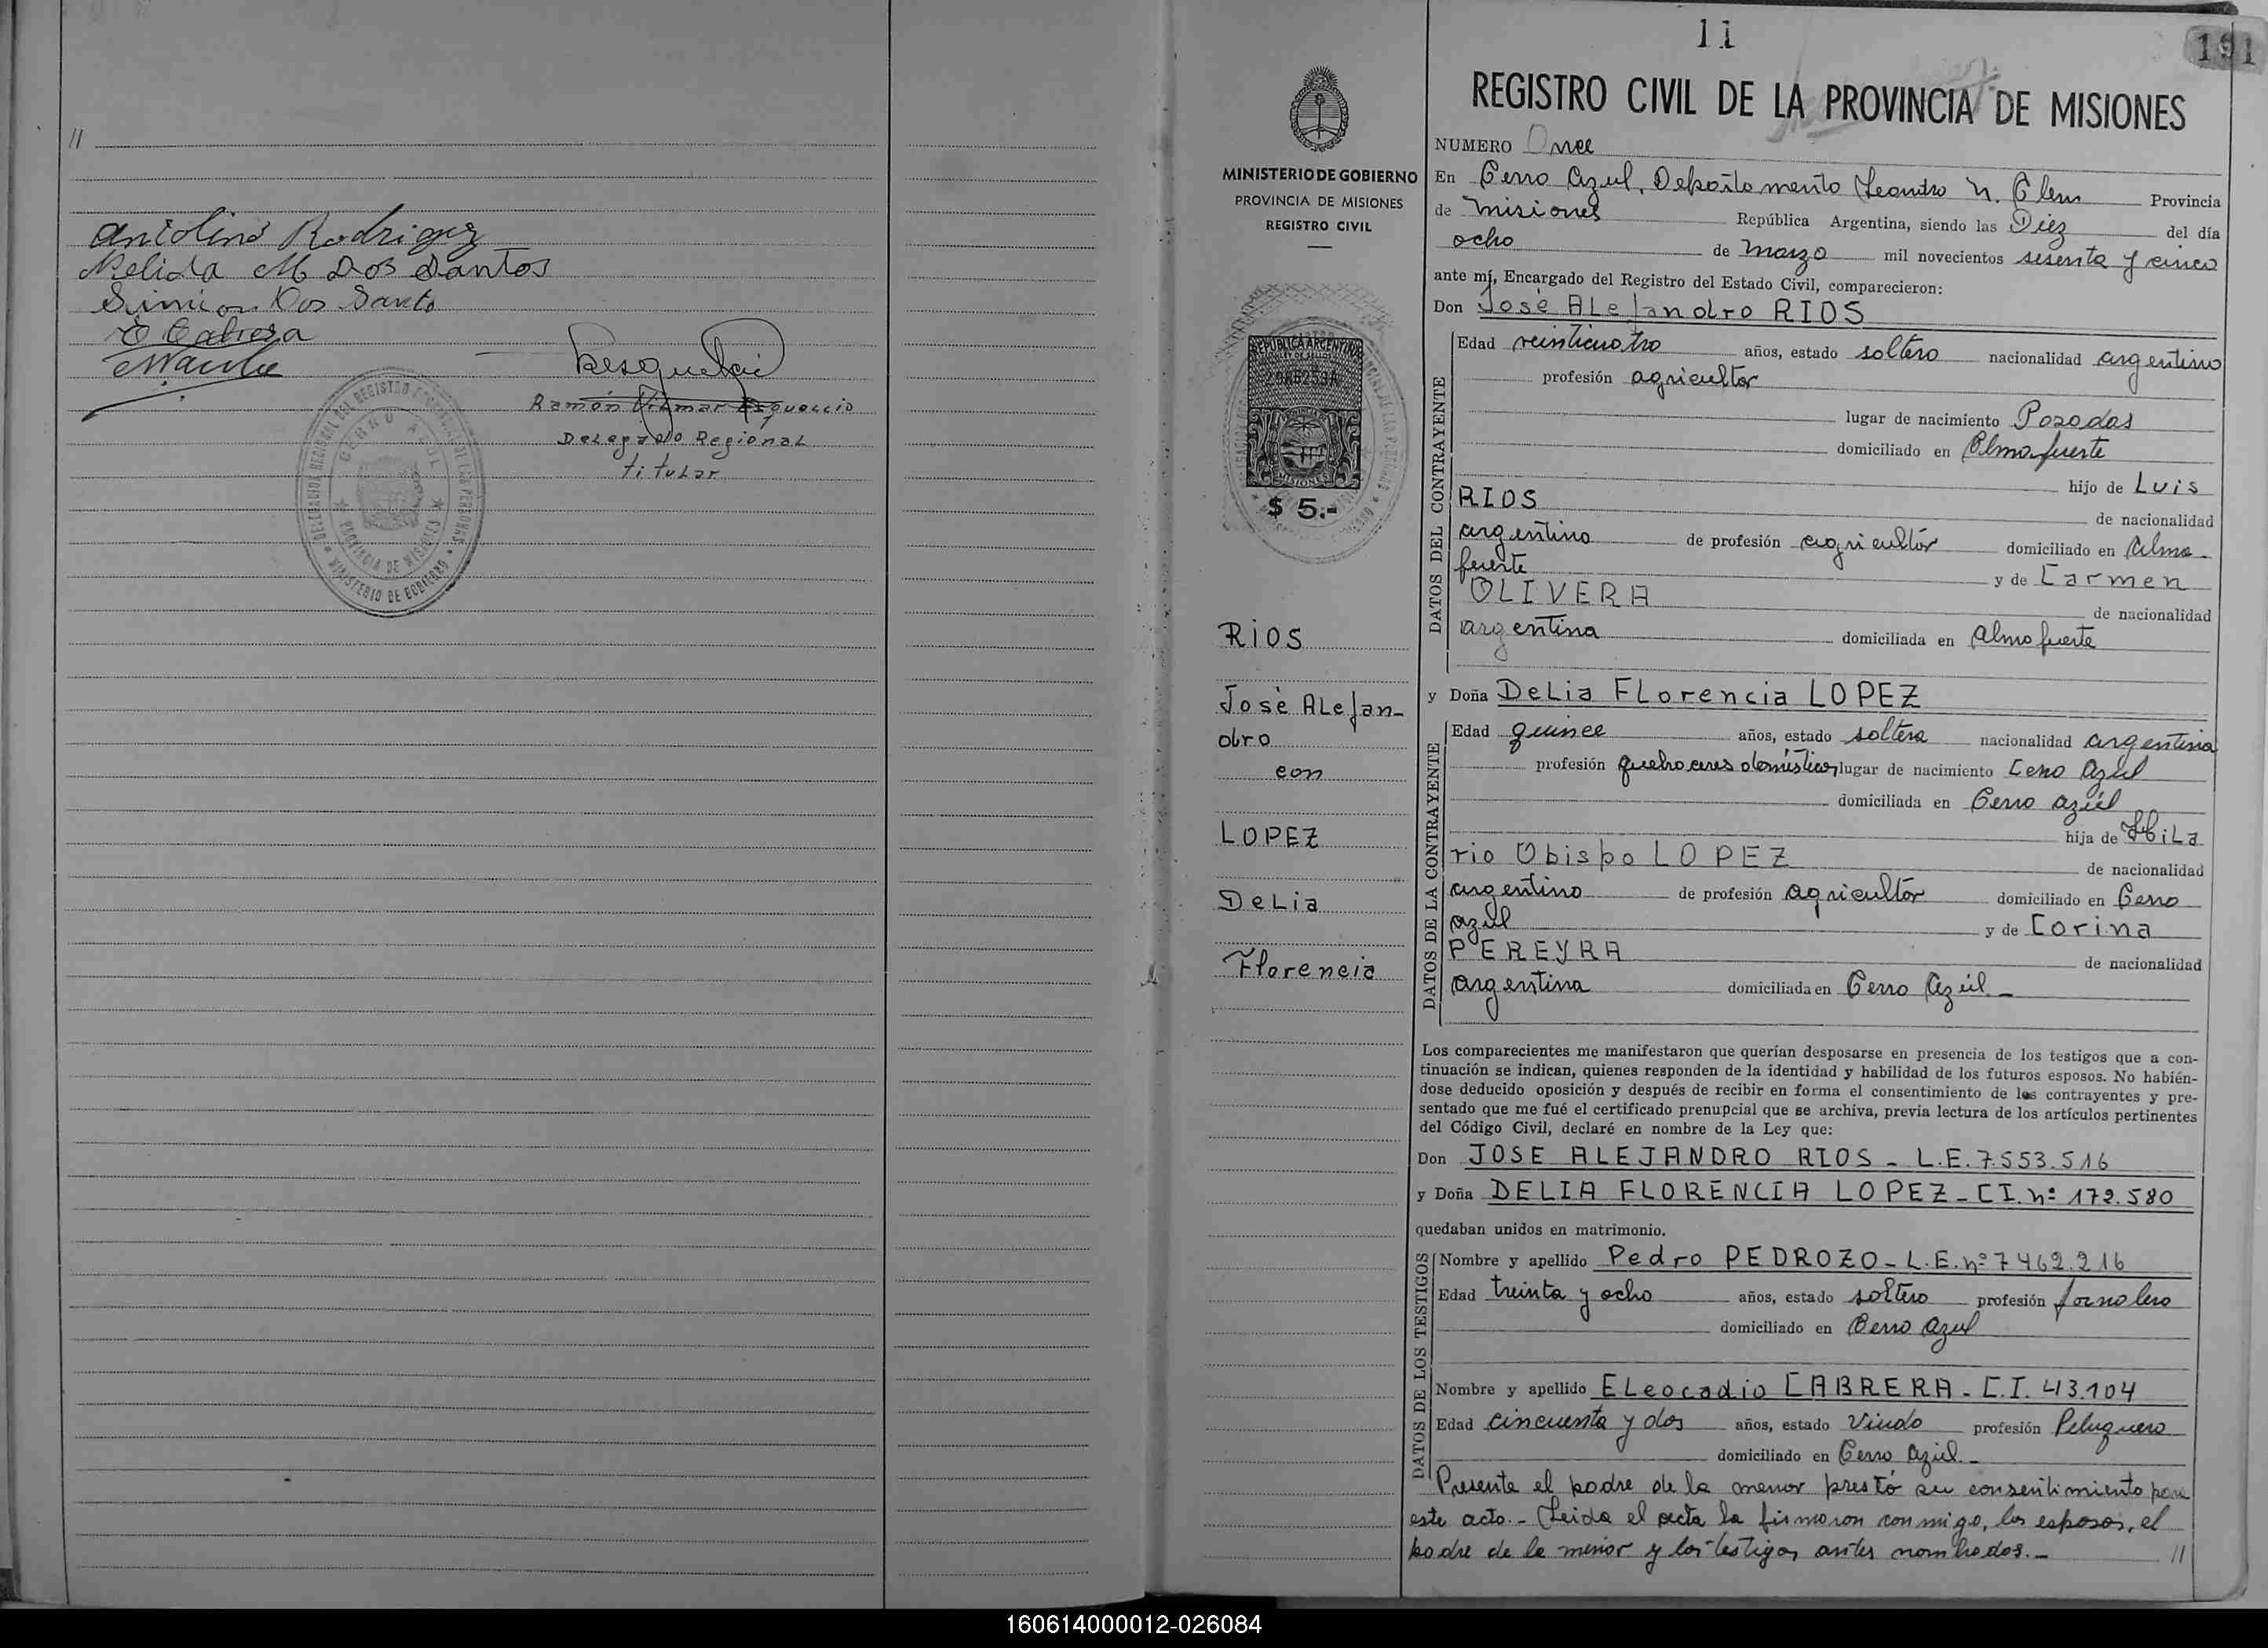 //
Antolino Rodriguez
Nelida M Dos Santos
Simion Dos Santo
E Cabrera
Ramón Vilmar Esquercio
Delegado Regional
titular
DELEGACION REGIONAL DEL REGISTRO PROVINCIAL DE LAS PERSONAS
CERRO AZUL
PROVINCIA DE MISIONES
MINISTERIO DE GOBIERNO
11
191
MINISTERIO DE GOBIERNO
PROVINCIA DE MISIONES
REGISTRO CIVIL
REPUBLICA ARGENTINA
LEY DE SELLOS
MISIONES
$ 5.-
RIOS
José ALejan-
dro
con
LOPEZ
DeLia
Florencia
REGISTRO CIVIL DE LA PROVINCIA DE MISIONES
NUMERO Once
En Cerro Azul, Departamento Leandro N. Alem Provincia
de Misiones República Argentina, siendo las Diez del día
ocho de Marzo mil novecientos sesenta y cinco
ante mí, Encargado del Registro del Estado Civil, comparecieron:
Don José ALejandro RIOS
DATOS DEL CONTRAYENTE
Edad veinticuatro años, estado soltero nacionalidad argentino
profesión agricultor
lugar de nacimiento Posadas
domiciliado en Almafuerte
hijo de Luis
RIOS de nacionalidad
argentino de profesión agricultor domiciliado en Alma-
fuerte y de Carmen
OLIVERA de nacionalidad
argentina domiciliada en Almafuerte
y Doña DeLia FLorencia LOPEZ
DATOS DE LA CONTRAYENTE
Edad quince años, estado soltera nacionalidad argentina
profesión quehaceres domésticos lugar de nacimiento Cerro Azul
domiciliada en Cerro azul
hija de HiLa
rio Obispo LOPEZ de nacionalidad
argentino de profesión agricultor domiciliado en Cerro
azul y de Corina
PEREYRA de nacionalidad
argentina domiciliada en Cerro Azul.-
Los comparecientes me manifestaron que querían desposarse en presencia de los testigos que a con-
tinuación se indican, quienes responden de la identidad y habilidad de los futuros esposos. No habién-
dose deducido oposición y después de recibir en forma el consentimiento de los contrayentes y pre-
sentado que me fué el certificado prenupcial que se archiva, previa lectura de los artículos pertinentes
del Código Civil, declaré en nombre de la Ley que:
Don JOSE ALEJANDRO RIOS - L.E. 7.553.516
y Doña DELIA FLORENCIA LOPEZ - C.I. nº 172.580
quedaban unidos en matrimonio.
DATOS DE LOS TESTIGOS
Nombre y apellido Pedro PEDROZO - L.E. nº 7462.216
Edad treinta y ocho años, estado soltero profesión jornalero
domiciliado en Cerro Azul
Nombre y apellido ELeocadio CABRERA - C.I. 43.104
Edad cincuenta y dos años, estado Viudo profesión Peluquero
domiciliado en Cerro Azul.-
Presente el padre de la menor prestó su consentimiento para
este acto.- Leida el acta la firmaron conmigo, los esposos, el
padre de la menor y los testigos antes nombrados.- //
160614000012-026084